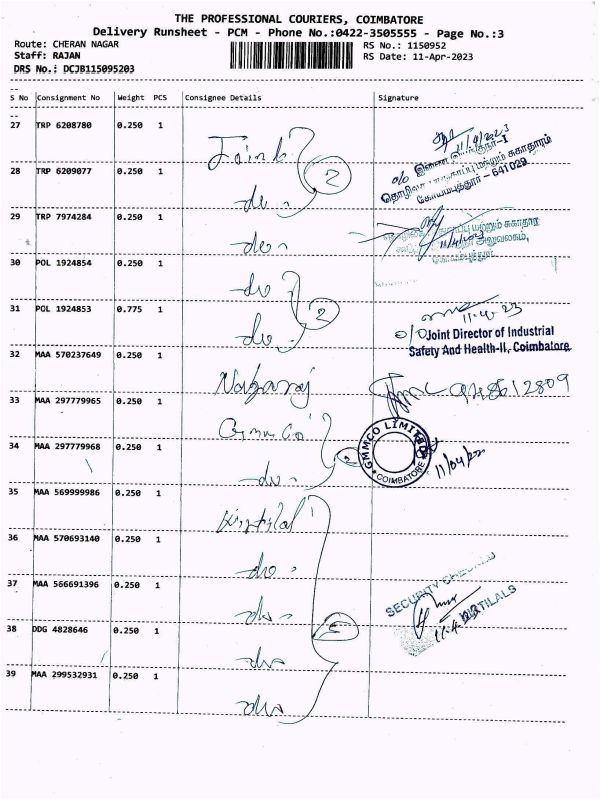 THE PROFESSIONAL COURIERS, COIMBATORE
Delivery Runsheet - PCM - Phone No.:0422-3505555 - Page No.:3
Route: CHERAN NAGAR
RS No.: 1150952
Staff: RAJAN
RS Date: 11-Apr-2023
DRS No.: DCJB115095203
S No Consignment No Weight PCS Consignee Details Signature
27 TRP 6208780 0.250 1
11/4/2023
28 TRP 6209077 0.250 1 do
2
தொழிலக பாதுகாப்பு மற்றும் சுகாதாரம்
கோயம்புத்தூர் - 641029
29 TRP 7974284 0.250 1 do
மற்றும் சுகாதார
11/4/2023
அலுவலகம்,
30 POL 1924854 0.250 1 do
31 POL 1924853 0.775 1 do
2
11.4.23
O/O Joint Director of Industrial
Safety And Health-II, Coimbatore
32 MAA 570237649 0.250 1 Nagaraj
33 MAA 297779965 0.250 1 Gmmco
GMMCO LIMITED
COIMBATORE
34 MAA 297779968 0.250 1 do
11/04/
35 MAA 569999986 0.250 1
36 MAA 570693140 0.250 1 do
37 MAA 566691396 0.250 1 do
SECURITY CHECKED
38 DDG 4828646 0.250 1 do
39 MAA 299532931 0.250 1 do